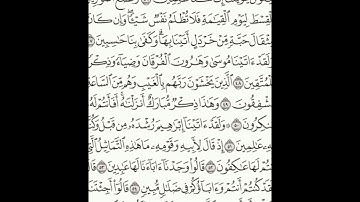 ٱلْقِسْطَ لِيَوْمِ ٱلْقِيَٰمَةِ فَلَا تُظْلَمُ نَفْسٌ شَيْـًٔا ۖ وَإِن كَانَ
مِثْقَالَ حَبَّةٍ مِّنْ خَرْدَلٍ أَتَيْنَا بِهَا ۗ وَكَفَىٰ بِنَا حَٰسِبِينَ
وَلَقَدْ ءَاتَيْنَا مُوسَىٰ وَهَٰرُونَ ٱلْفُرْقَانَ وَضِيَآءً وَذِكْرًا
لِّلْمُتَّقِينَ ٤٨ ٱلَّذِينَ يَخْشَوْنَ رَبَّهُم بِٱلْغَيْبِ وَهُم مِّنَ ٱلسَّاعَةِ
مُشْفِقُونَ ٤٩ وَهَٰذَا ذِكْرٌ مُّبَارَكٌ أَنزَلْنَٰهُ ۚ أَفَأَنتُمْ لَهُۥ
مُنكِرُونَ ٥٠ وَلَقَدْ ءَاتَيْنَآ إِبْرَٰهِيمَ رُشْدَهُۥ مِن قَبْلُ وَكُنَّا
بِهِۦ عَٰلِمِينَ ٥١ إِذْ قَالَ لِأَبِيهِ وَقَوْمِهِۦ مَا هَٰذِهِ ٱلتَّمَاثِيلُ ٱلَّتِىٓ
أَنتُمْ لَهَا عَٰكِفُونَ ٥٢ قَالُوا۟ وَجَدْنَآ ءَابَآءَنَا لَهَا عَٰبِدِينَ ٥٣
لَقَدْ كُنتُمْ أَنتُمْ وَءَابَآؤُكُمْ فِى ضَلَٰلٍ مُّبِينٍ ٥٤ قَالُوٓا۟ أَجِئْتَنَا